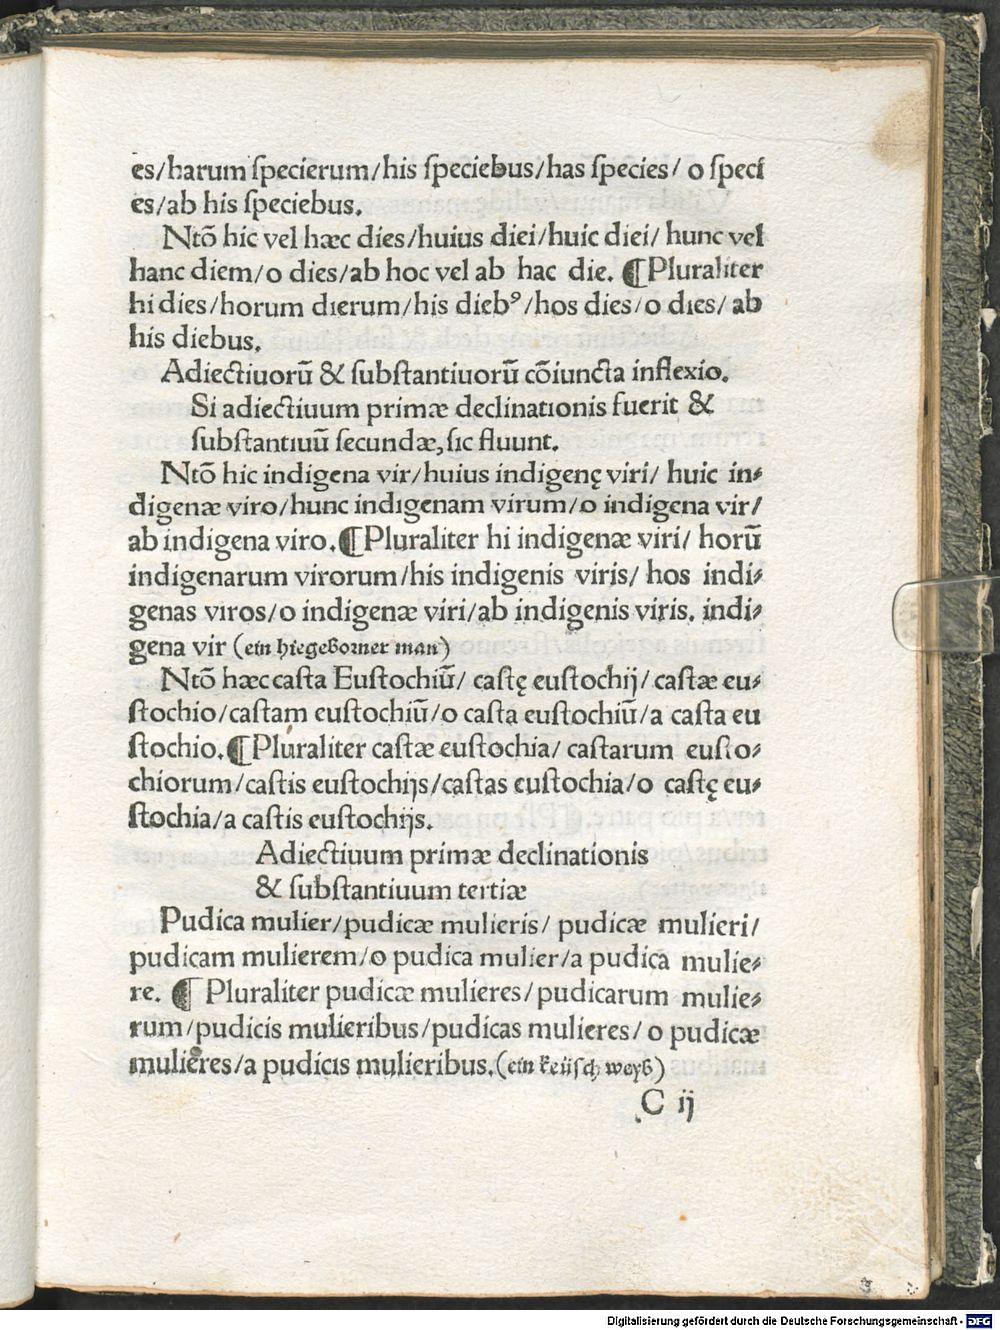 es/harum ſpecierum/his ſpeciebus/has ſpecies/ o ſpeci
es/ab his ſpeciebus.
Ntõ hic vel hæc dies/huius diei/huic diei/ hunc vel
hanc diem/o dies/ab hoc vel ab hac die. ¶Pluraliter
hi dies/horum dierum/his diebꝰ/hos dies/o dies/ ab
his diebus.
Adiectiuorũ & ſubſtantiuorũ cõiuncta inflexio.
Si adiectiuum primæ declinationis fuerit &
ſubſtantiuũ ſecundæ, ſic fluunt.
Ntõ hic indigena vir/huius indigenę viri/ huic in⸗
digenæ viro/hunc indigenam virum/o indigena vir/
ab indigena viro.¶Pluraliter hi indigenæ viri/ horũ
indigenarum virorum/his indigenis viris/ hos indi⸗
genas viros/o indigenæ viri/ab indigenis viris. indi⸗
gena vir (ein hiegeborner man)
Ntõ hæc caſta Euſtochiũ/ caſtę euſtochij/caſtæ eu⸗
ſtochio/caſtam euſtochiũ/o caſta euſtochiũ/a caſta eu
ſtochio.¶Pluraliter caſtæ euſtochia/ caſtarum euſto⸗
chiorum/caſtis euſtochijs/caſtas euſtochia/o caſtę eu⸗
ſtochia/a caſtis euſtochijs.
Adiectiuum primæ declinationis
& ſubſtantiuum tertiæ
Pudica mulier/pudicæ mulieris/ pudicæ mulieri/
pudicam mulierem/o pudica mulier/a pudica mulie⸗
re. ¶ Pluraliter pudicæ mulieres/pudicarum mulie⸗
rum/pudicis mulieribus/pudicas mulieres/ o pudicæ
mulieres/a pudicis mulieribus.(ein keüſch weyb)
C ij
Digitalisierung gefördert durch die Deutsche Forschungsgemeinschaft - DFG